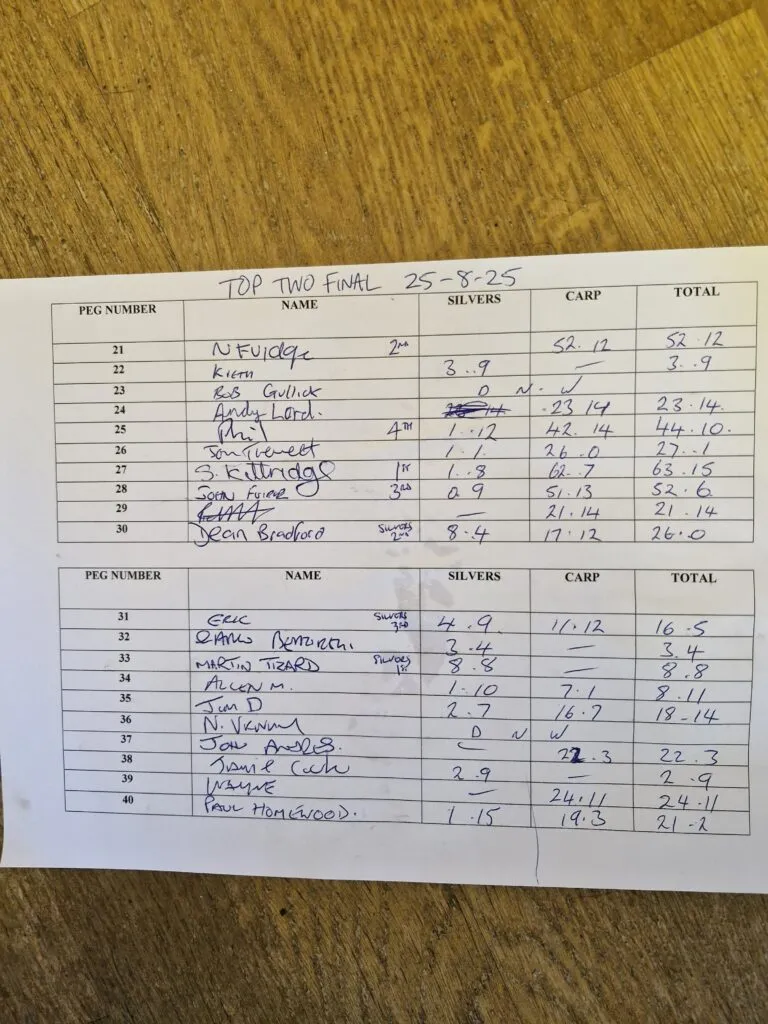 TOP TWO FINAL 25-8-25
PEG NUMBER NAME SILVERS CARP TOTAL
21 N Fudge 2ND 52.12 52.12
22 KIETH 3.9 — 3.9
23 BOB Gullick D N.W
24 Andy Lord. 23 14 23.14.
25 Phil 4TH 1.12 42.14 44.10.
26 1.1. 26.0 27.1
27 S. Kittridge 1ST 1.8 62.7 63.15
28 JOHN 3RD 0.9 51.13 52.6
29 — 21.14 21.14
30 Dean Bradford SILVERS 2ND 8.4 17.12 26.0
PEG NUMBER NAME SILVERS CARP TOTAL
31 ERIC SILVERS 3RD 4.9 11.12 16.5
32 3.4 — 3.4
33 MARTIN TIZARD SILVERS 1ST 8.8 — 8.8
34 ALLEN M. 1.10 7.1 8.11
35 JIM D 2.7 16.7 18-14
36 N. D N W
37 JOHN — 22.3 22.3
38 2.9 — 2.9
39 WAYNE — 24.11 24.11
40 PAUL HOMEWOOD. 1.15 19.3 21-2